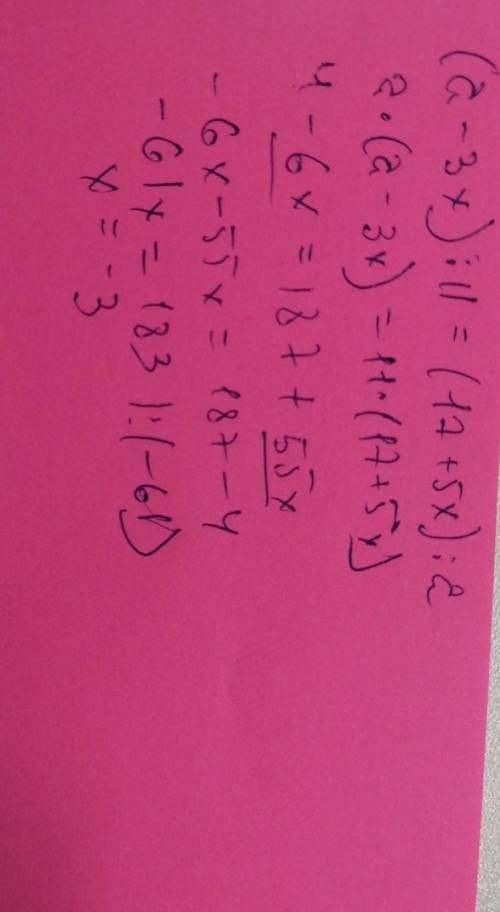 (2 - 3x) : 11 = (17 + 5x) : 2
2 · (2 - 3x) = 11 · (17 + 5x)
4 - 6x = 187 + 55x
- 6x - 55x = 187 - 4
- 61x = 183 | : (-61)
x = -3